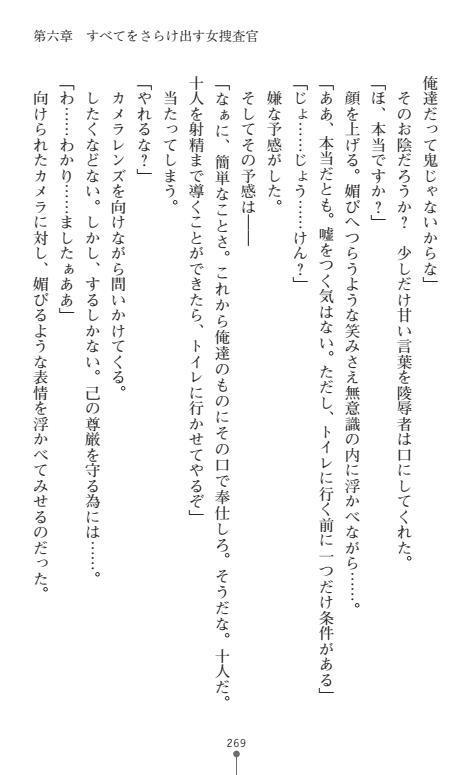 第六章　すべてをさらけ出す女捜査官
俺達だって鬼じゃないからな」
そのお陰だろうか？　少しだけ甘い言葉を陵辱者は口にしてくれた。
「ほ、本当ですか？」
顔を上げる。媚びへつらうような笑みさえ無意識の内に浮かべながら……。
「ああ、本当だとも。嘘をつく気はない。ただし、トイレに行く前に一つだけ条件がある」
「じょ……じょう……けん？」
嫌な予感がした。
そしてその予感は――
「なぁに、簡単なことさ。これから俺達のものにその口で奉仕しろ。そうだな。十人だ。
十人を射精まで導くことができたら、トイレに行かせてやるぞ」
当たってしまう。
「やれるな？」
カメラレンズを向けながら問いかけてくる。
したくなどない。しかし、するしかない。己の尊厳を守る為には……。
「わ……わかり……ましたぁああ」
向けられたカメラに対し、媚びるような表情を浮かべてみせるのだった。
269